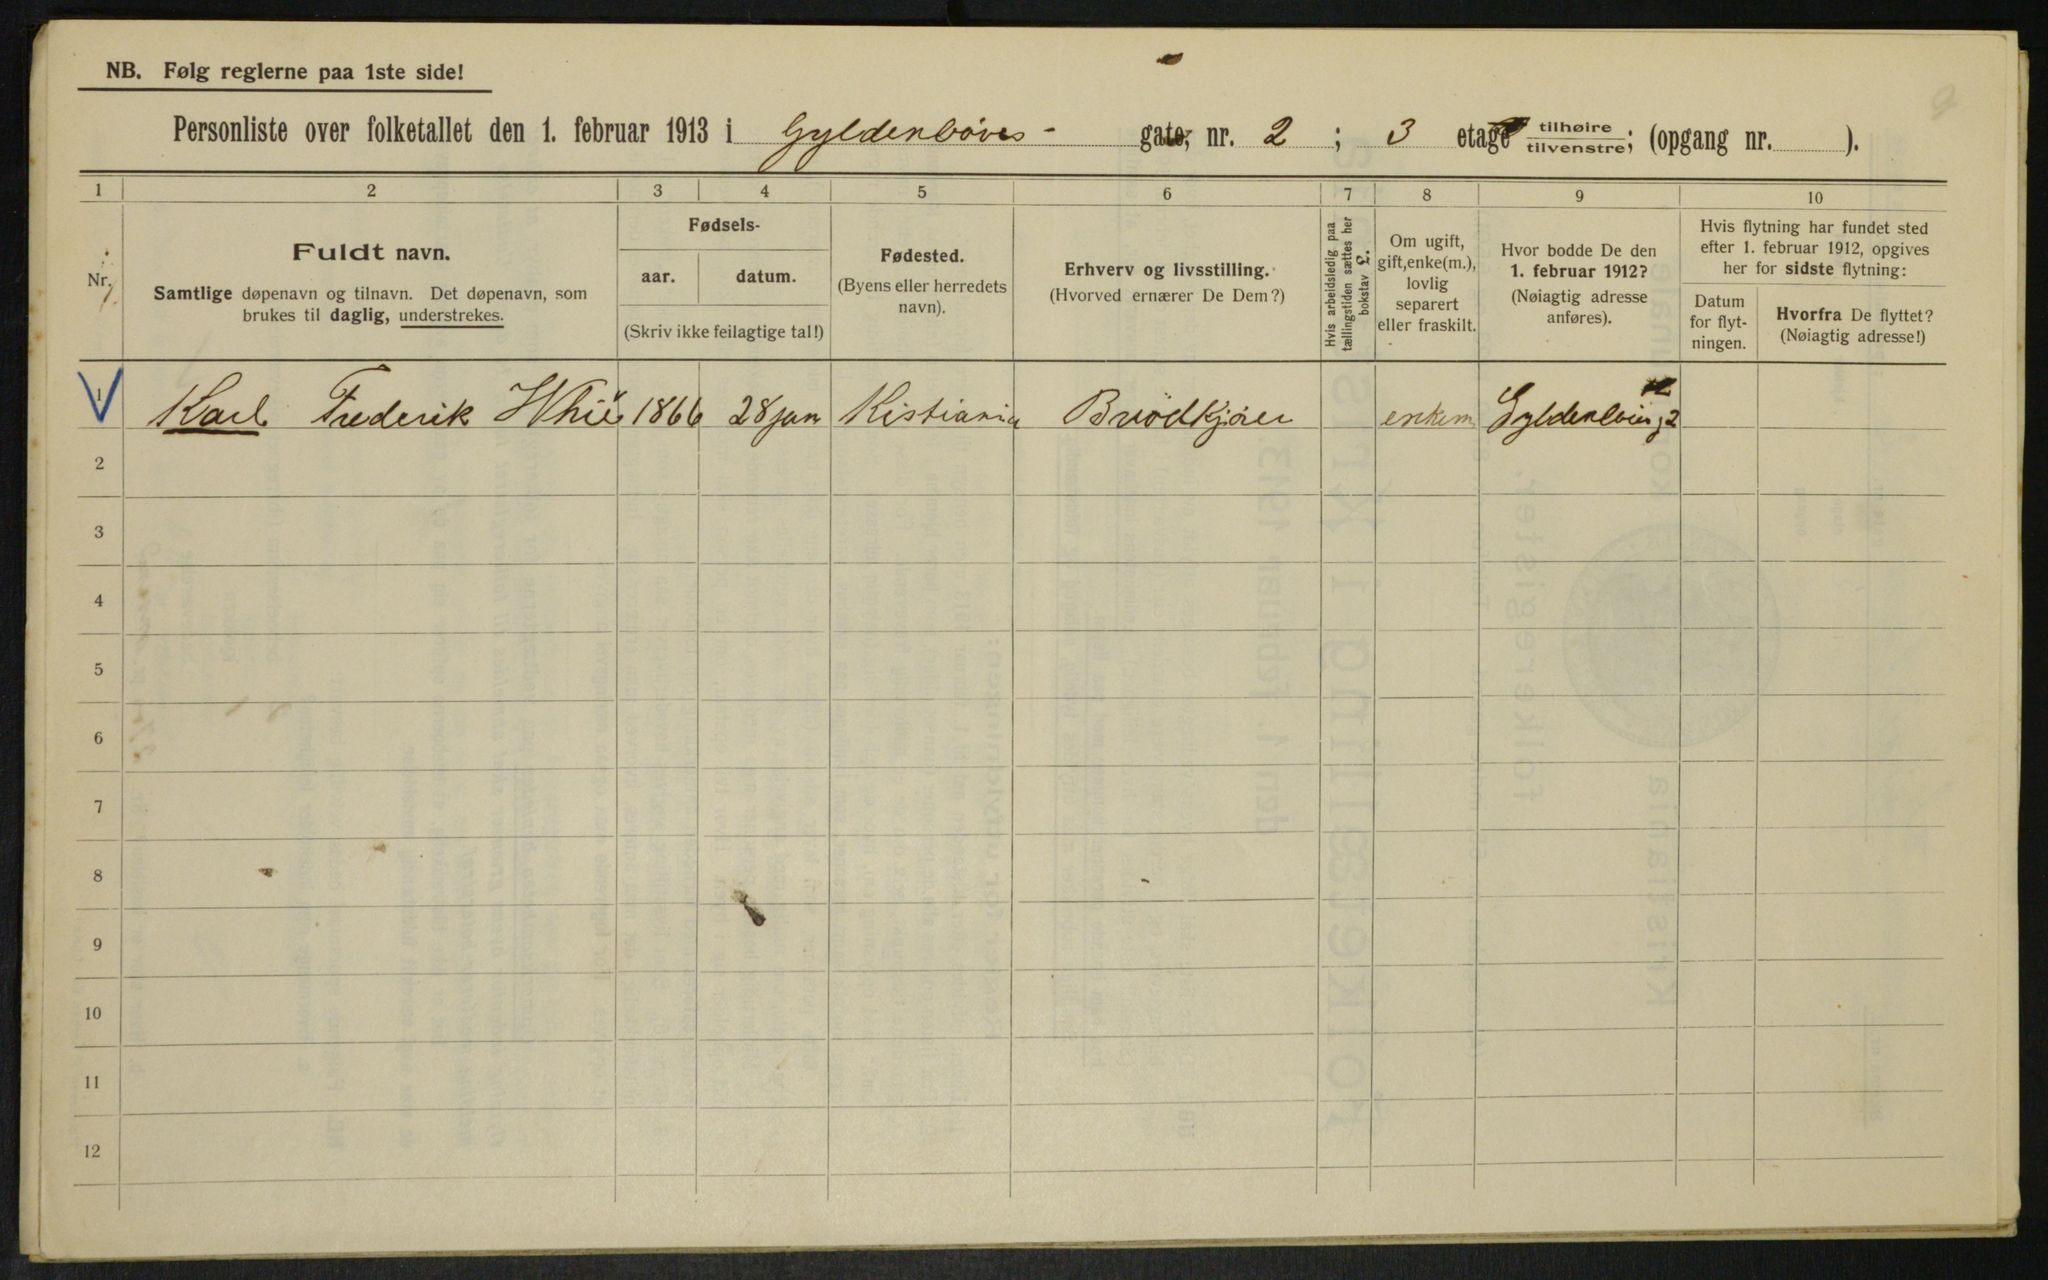 NB. Følg reglerne paa 1ste side!
Personliste over folketallet den 1. februar 1913 i Gyldenløves- gate, nr. 2 ; 3 etage tilhøire tilvenstre; (opgang nr. ).
1 2 3 4 5 6 7 8 9 10
Nr.
Fuldt navn.
Samtlige døpenavn og tilnavn. Det døpenavn, som
brukes til daglig, understrekes.
Fødsels-
aar. datum.
(Skriv ikke feilagtige tal!)
Fødested.
(Byens eller herredets
navn).
Erhverv og livsstilling.
(Hvorved ernærer De Dem?)
Hvis arbeidsledig paa
tællingstiden sættes her
bokstav l.
Om ugift,
gift, enke(m.),
lovlig
separert
eller fraskilt.
Hvor bodde De den
1. februar 1912?
(Nøiagtig adresse
anføres).
Hvis flytning har fundet sted
efter 1. februar 1912, opgives
her for sidste flytning:
Datum
for flyt-
ningen.
Hvorfra De flyttet?
(Nøiagtig adresse!)
1 Karl Frederik 1866 28 jan Kistiania Brødkjører enkem Gyldenløvesg 2
2
3
4
5
6
7
8
9
10
11
12